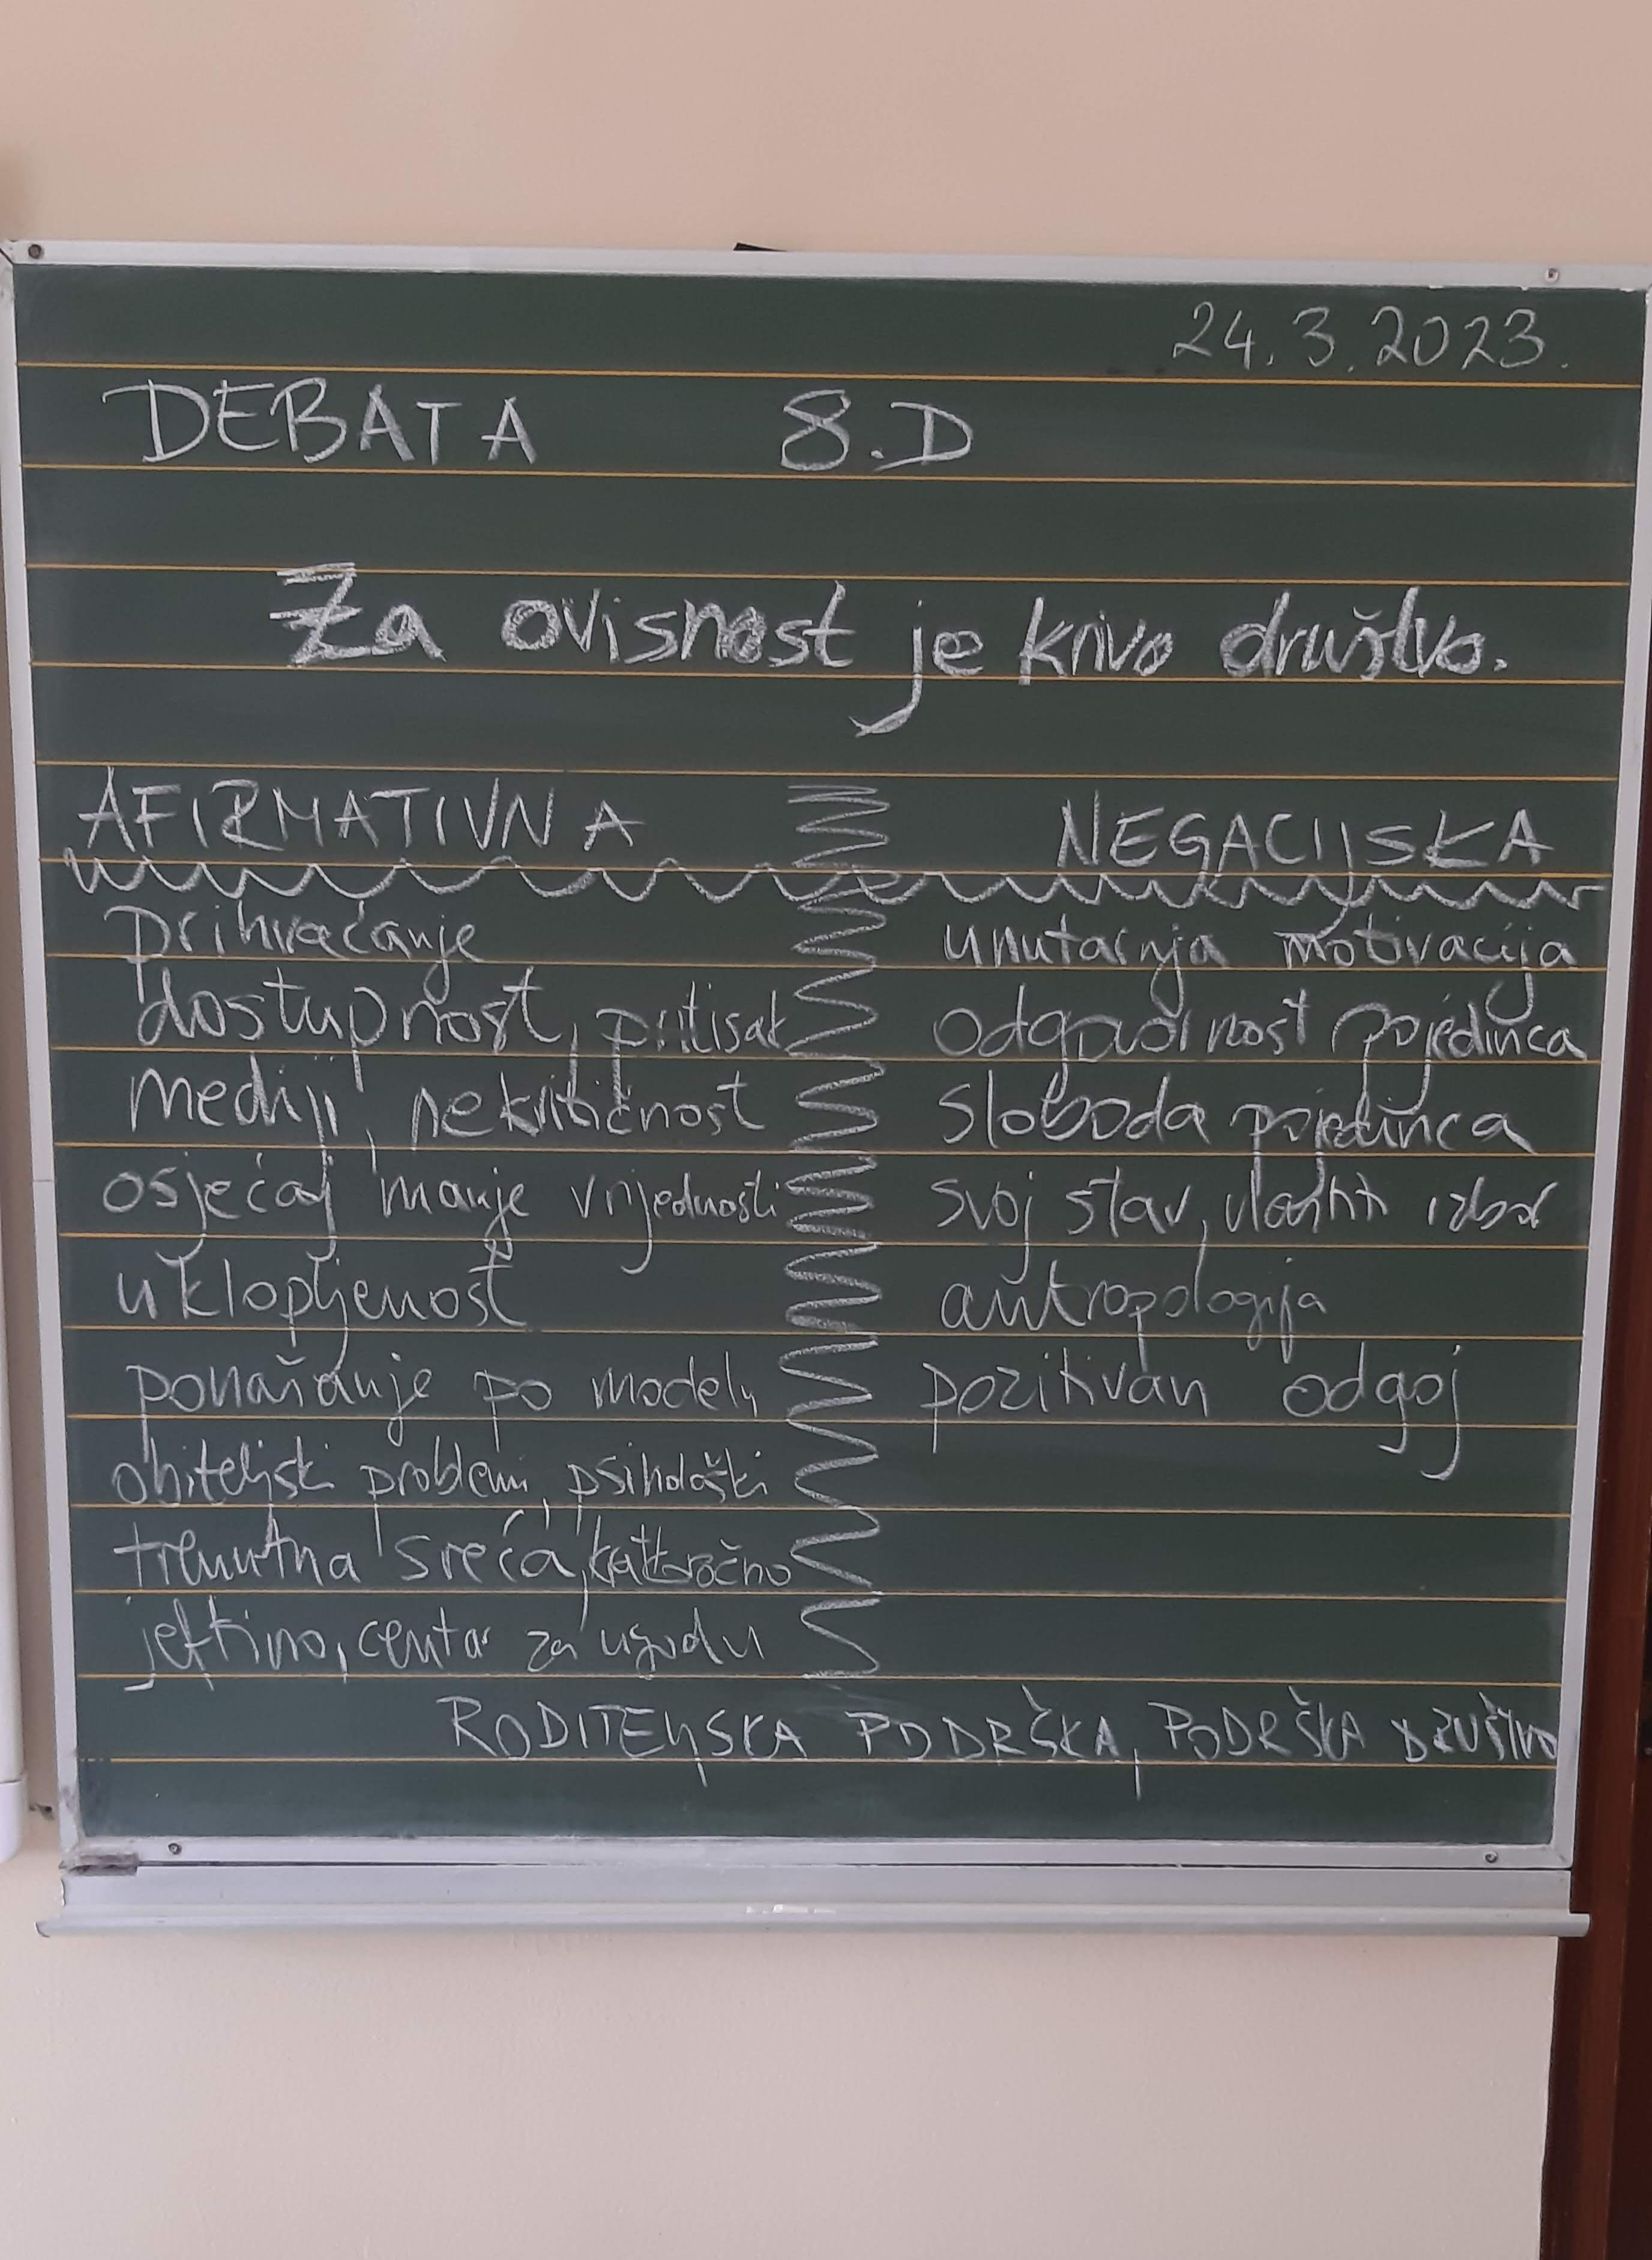 24.3.2023.
DEBATA 8.D
Za ovisnost je krivo društvo.
AFIRMATIVNA
prihvaćanje
dostupnost, pritisak
mediji, nekritičnost
osjećaj manje vrijednosti
uklopljenost
ponašanje po modelu
obiteljski problemi, psihološki
trenutna sreća, kratkoročno
jeftino, centar za ugodu
NEGACIJSKA
unutarnja motivacija
odgovornost pojedinca
sloboda pojedinca
svoj stav, vlastiti izbor
antropologija
pozitivan odgoj
RODITELJSKA PODRŠKA, PODRŠKA DRUŠTVO